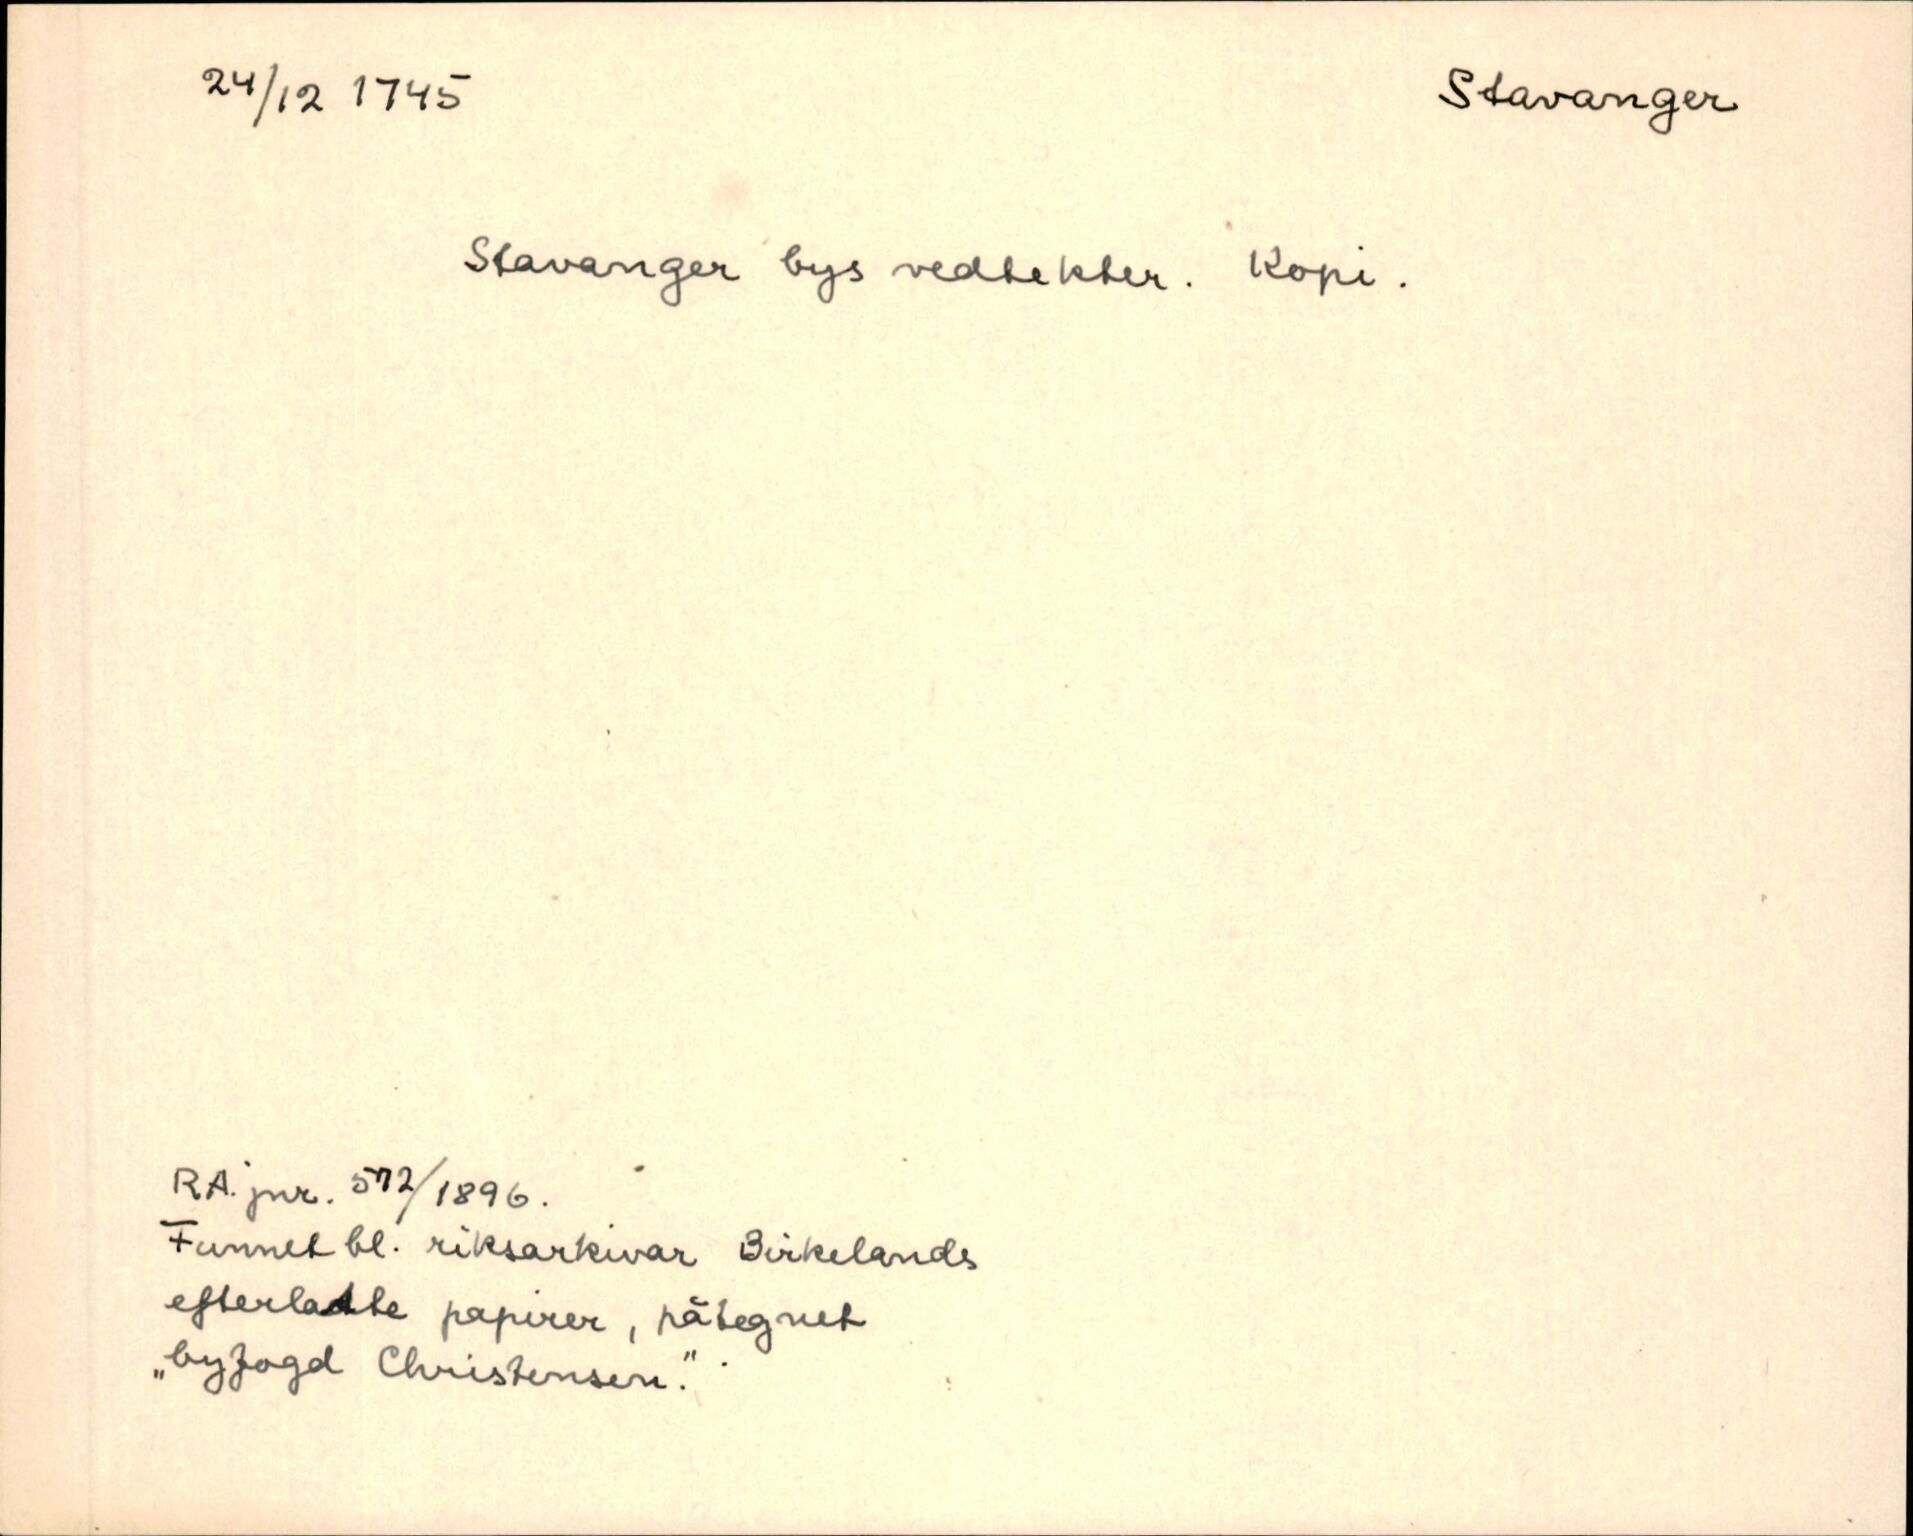 24/12 1745
Stavanger
Stavanger bys vedtekter. Kopi.
RA. jnr. 572/1896.
Funnet bl. riksarkivar Birkelands
efterlatte papirer, påtegnet
„byfogd Christensen.".